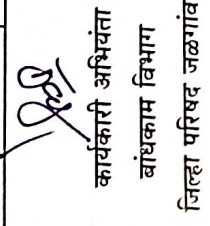 कार्यकारी अभियंता
बांधकाम विभाग
जिल्हा परिषद जळगांव